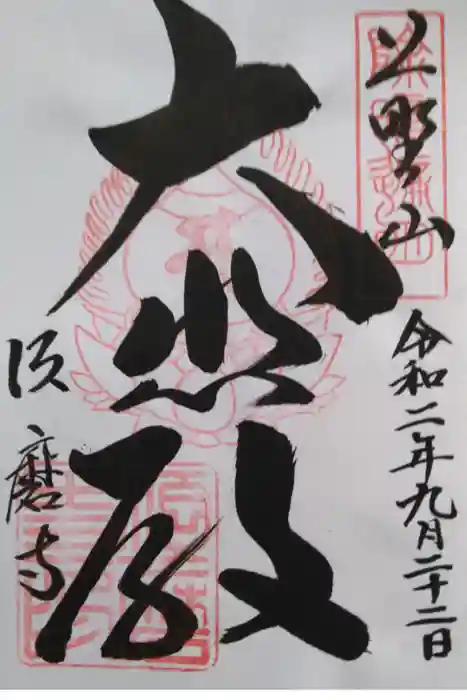 上野山
令和二年九月二十二日
大悲殿
須磨寺